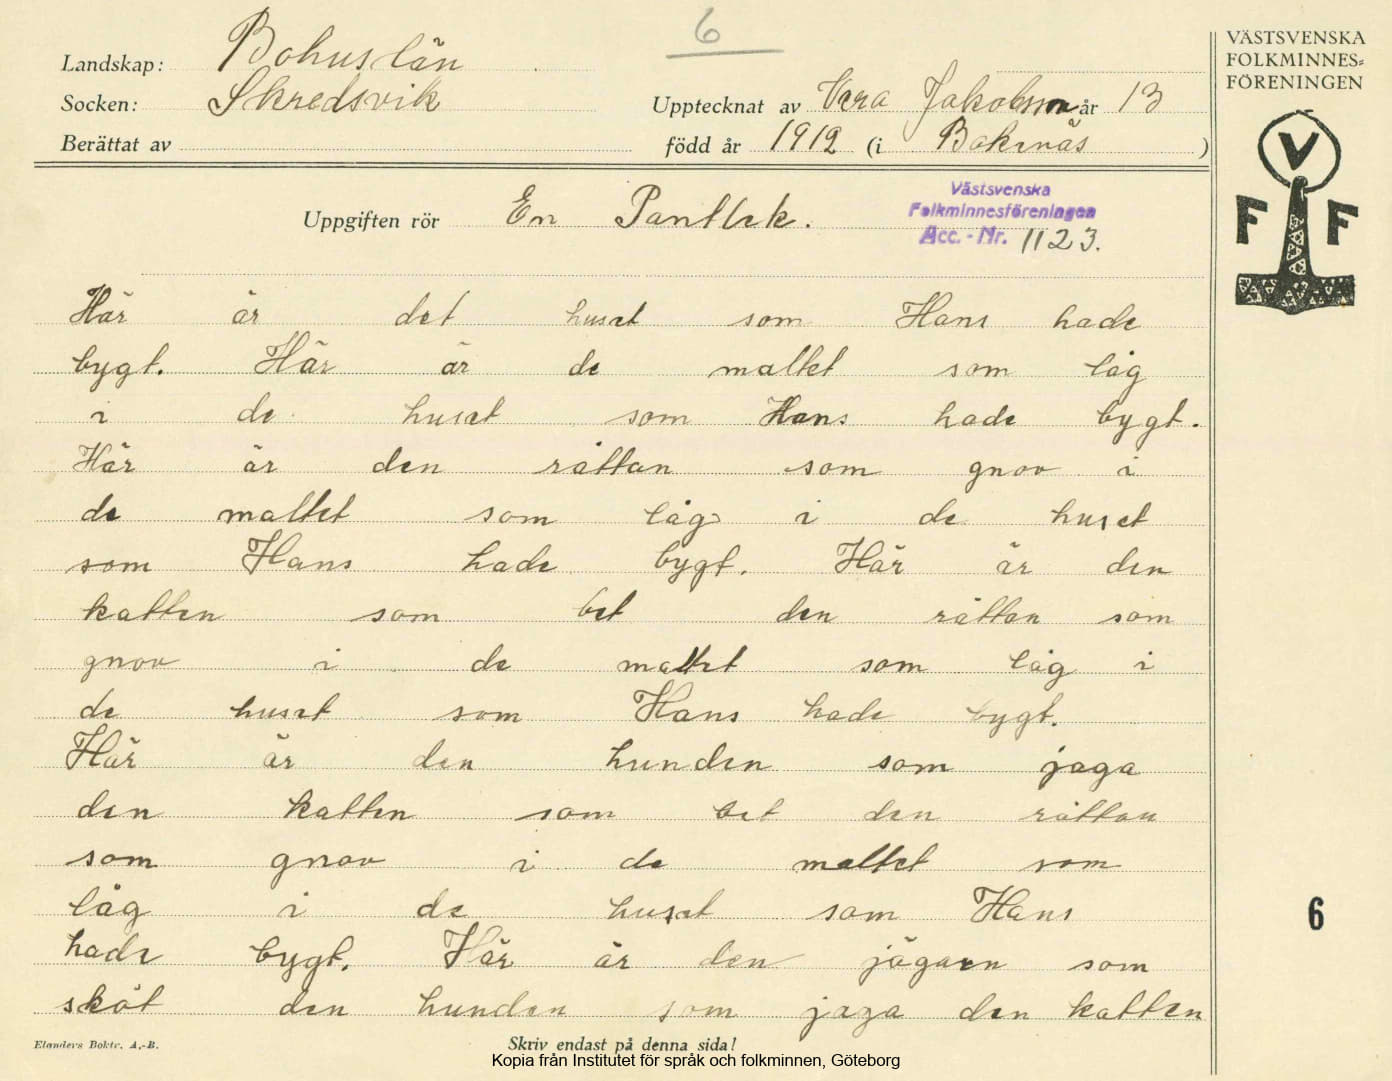 6
Landskap: Bohuslän
Socken: Skredsvik
Berättat av
Upptecknat av Vera Jakobsson år 13
född år 1912 (i Bokenäs )
VÄSTSVENSKA
FOLKMINNES=
FÖRENINGEN
V
F F
Uppgiften rör En Pantlek.
Västsvenska
Folkminnesföreningen
Acc. - Nr. 1123.
Här är det huset som Hans hade
bygt. Här är de maltet som låg
i de huset som Hans hade bygt.
Här är den råttan som gnov i
de maltet som låg i de huset
som Hans hade bygt. Här är den
katten som bet den råttan som
gnov i de maltet som låg i
de huset som Hans hade bygt.
Här är den hunden som jaga
den katten som bet den råttan
som gnov i de maltet som
låg i de huset som Hans
hade bygt. Här är den jägaren som
sköt den hunden som jaga den katten
6
Elanders Boktr. A.-B.
Skriv endast på denna sida!
Kopia från Institutet för språk och folkminnen, Göteborg